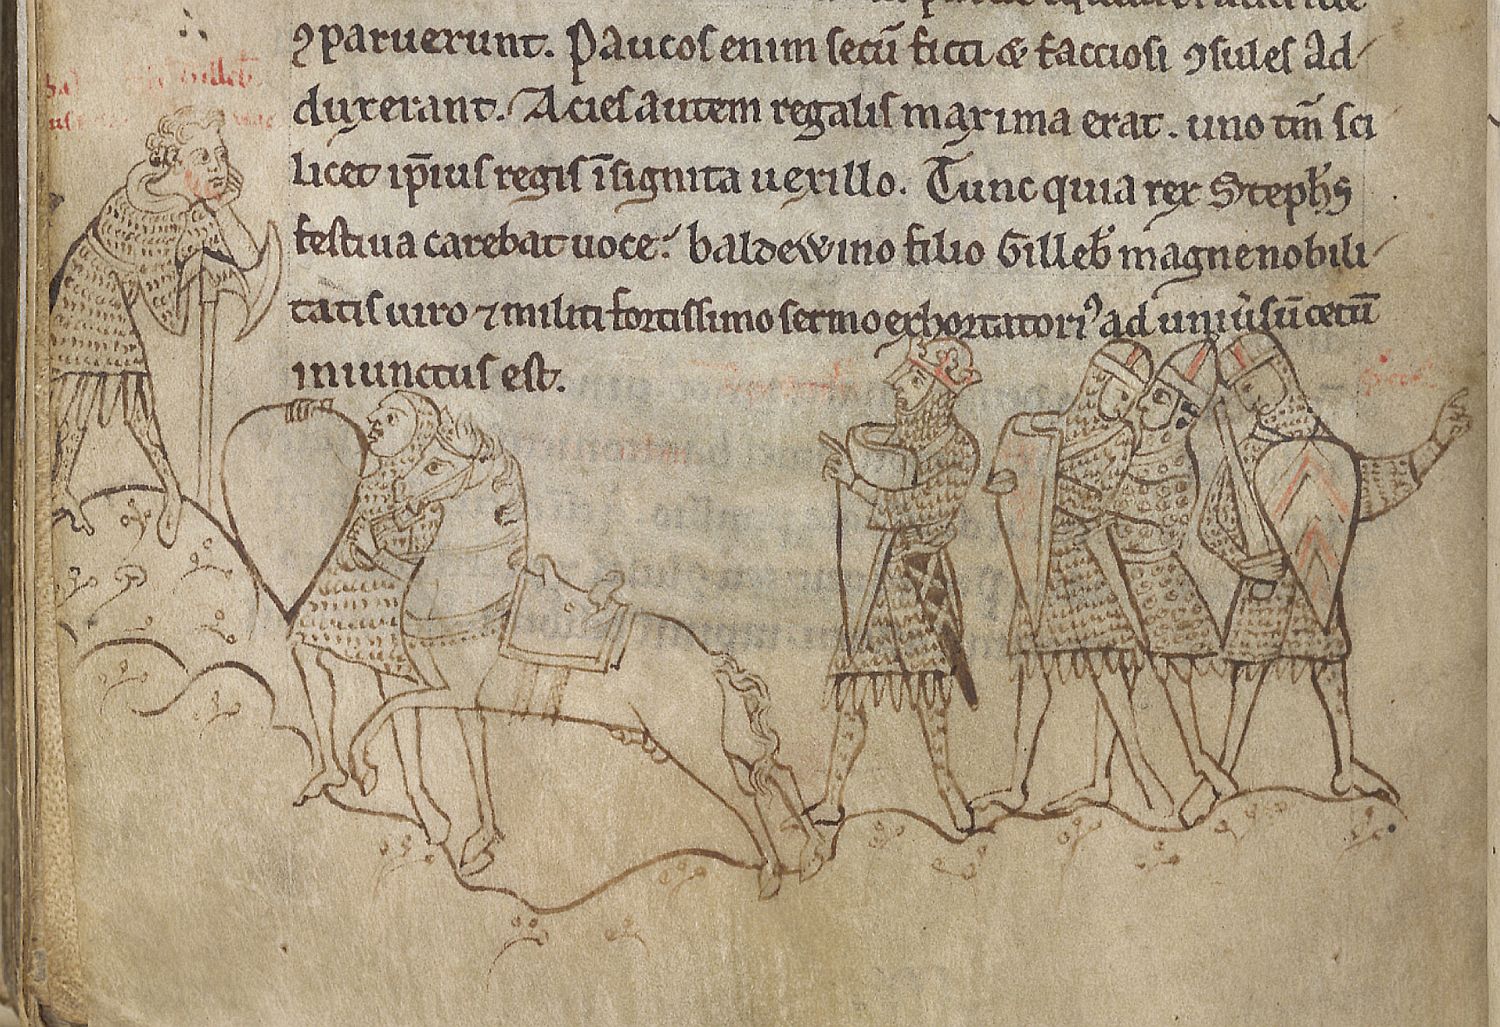 ꝯparuerunt. Paucos enim secū ficti & facciosi ꝯsules ad-
duxerant. Acies autem regalis maxima erat. uno tm̄ sci
licet ip̄ius regis īsignita uexillo. Tunc quia rex Stephs
festiua carebat uoce: baldewino filio Gilleb̄ magne nobili-
tatis uiro ⁊ militi fortissimo sermo exhortatoriꝰ ad uniūsū cetū
iniunctus est.
Gilleb̄